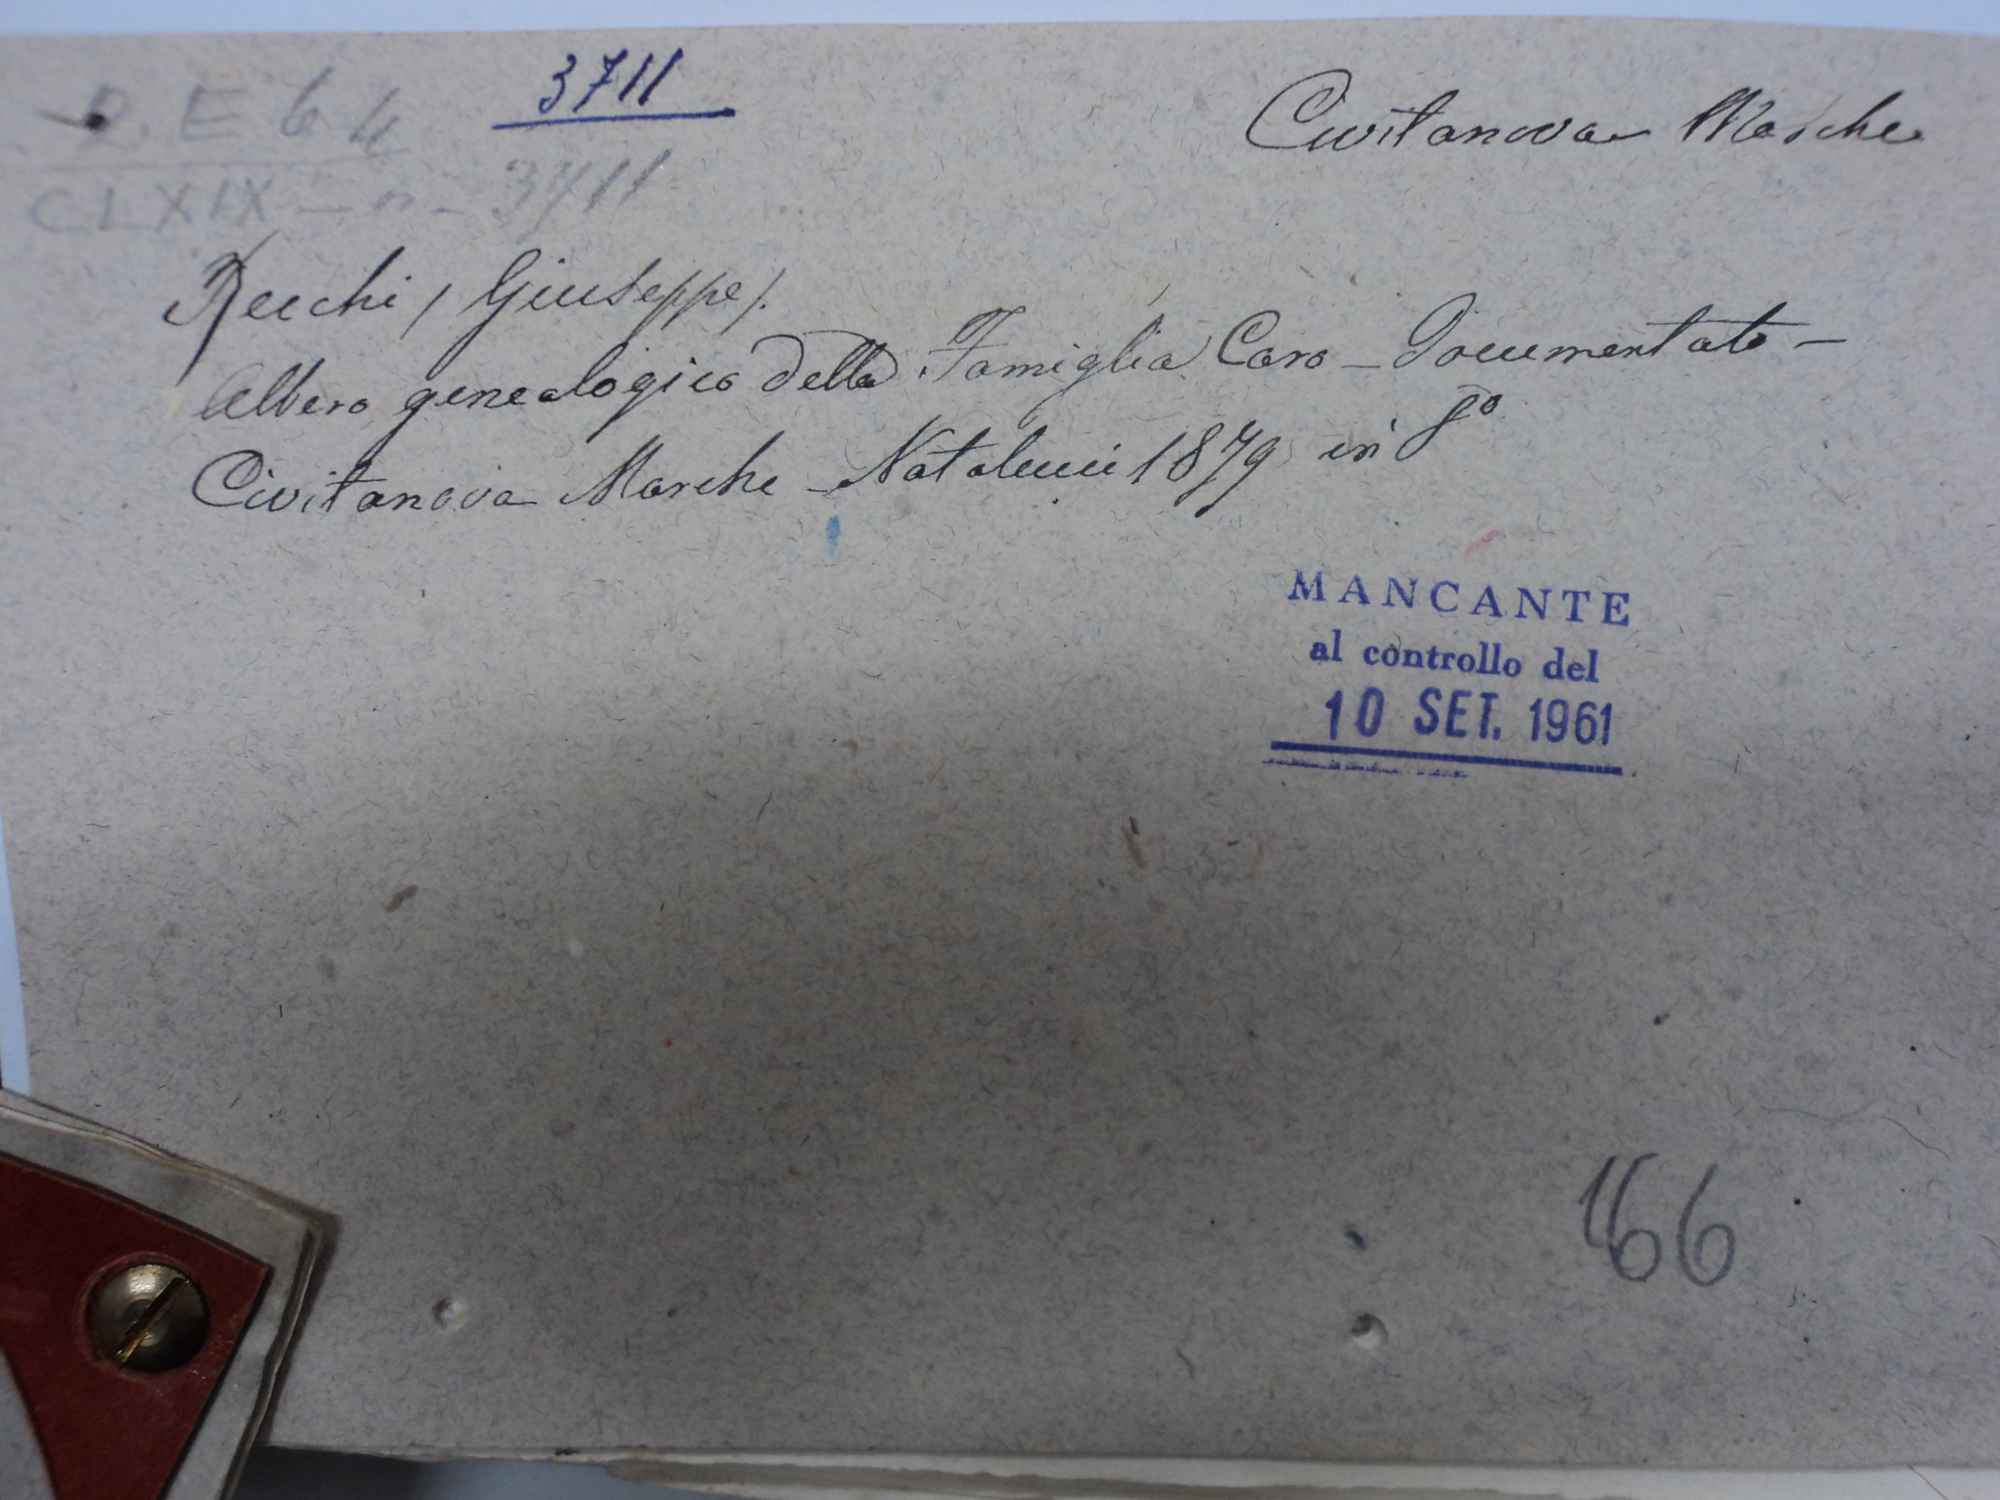 3711
Civitanova Marche
D. E 6 4
CLXIX - n - 3711
Recchi (Giuseppe).
Albero genealogico della Famiglia Caro - Documentato -
Civitanova Marche - Natalucci 1879 in 8º
MANCANTE
al controllo del
10 SET. 1961
166